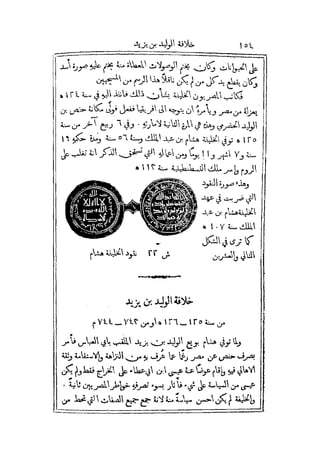 ١٥٤ خلافة الوليد بن يزيد
على الحيوانات وكان يختم الوصولات المعطاة منه بختم عليه صورة أسد
وكان يقطع يد كل من لم يكن ناقلاً هذا الرسم من المسيحيين
فكاتب المصريون الخليفة بشأن ذلك فانفذ اليه في سنة ١٢٤ ه
يعزله من مصر ويأمره ان يتوجه الى افريقيا ففعل فولي مكانه حفص بن
الوليد الحضرمي وهذه هي المرة الثانية لامارته . وفي ٦ ربيع آخر من سنة
١٢٥ ه توفي الخليفة هشام بن عبد الملك وسنه ٥٦ سنة ومدة حكمه ١٩
سنة و ٧ اشهر و ١١ يوماً ومن اعماله التي تستحق الذكر انه تغلب على
الروم واسر ملك القسطنطينية سنة ١١٣ ه
وهذه صورة النقود
التي ضربت في عهد
الخليفة هشام بن عبد
الملك سنة ١٠٧ ه
كما ترى في الشكل
الثاني والعشرين
ش ٢٢ نقود الخليفة هشام
خلافة الوليد بن يزيد
من سنة ١٢٥ — ١٢٦ ه او من ٧٤٣ — ٧٤٤ م
ولما توفي هشام بويع الوليد بن يزيد الملقب بابي العباس فأمر
بصرف حفص عن مصر رغماً عما عُرف به من النزاهة والاستقامة وثقة
الاهالي فيه واقام عوضاً عنه عيسى ابن ابي عطاء على الخراج فقط ولم يكن
عيسى من السياسة على شيء فأثار بسوء تصرفه خواطر المصريين ثانية .
والخليفة لم يكن احسن سياسة منه لانه جمع جميع الصفات التي تحط من